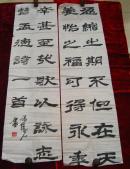 盈縮之期不但在天
養怡之福可得永年
幸甚至哉歌以詠志
孟德詩一首